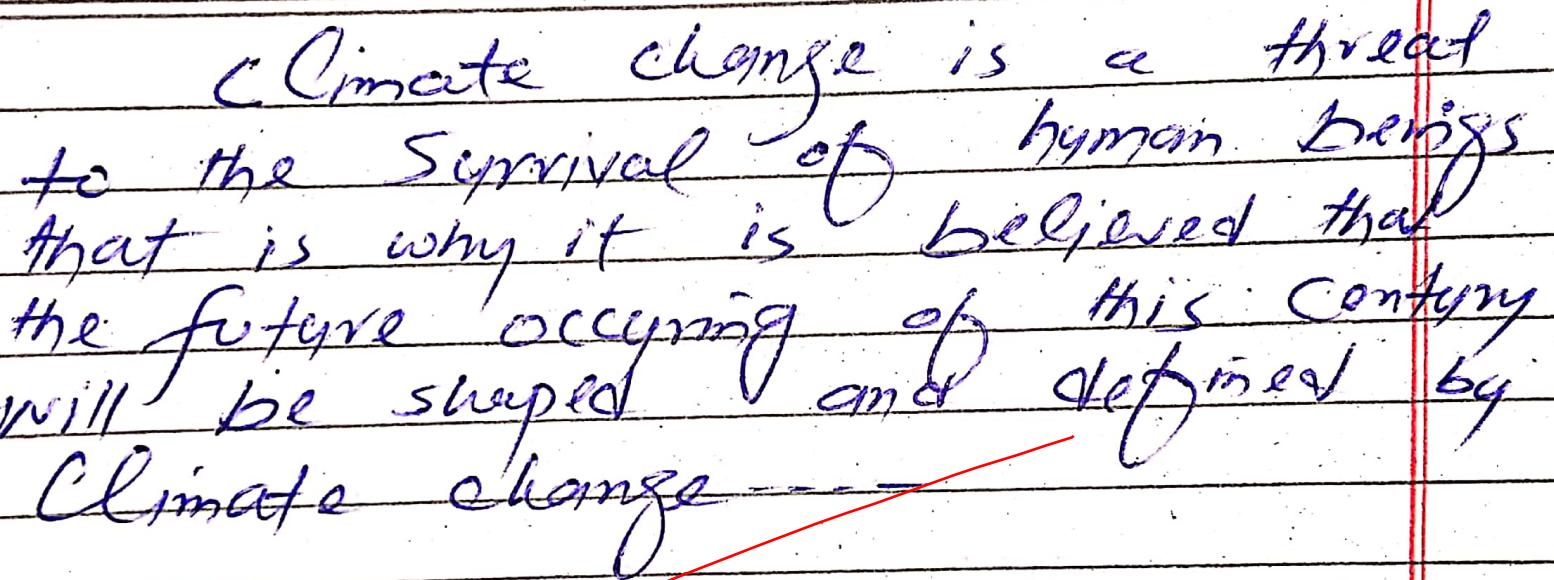 Climate change is a threat
to the Survival of human beings
that is why it is believed that
the future occuring of this Century
will be shaped and defined by
Climate change ----